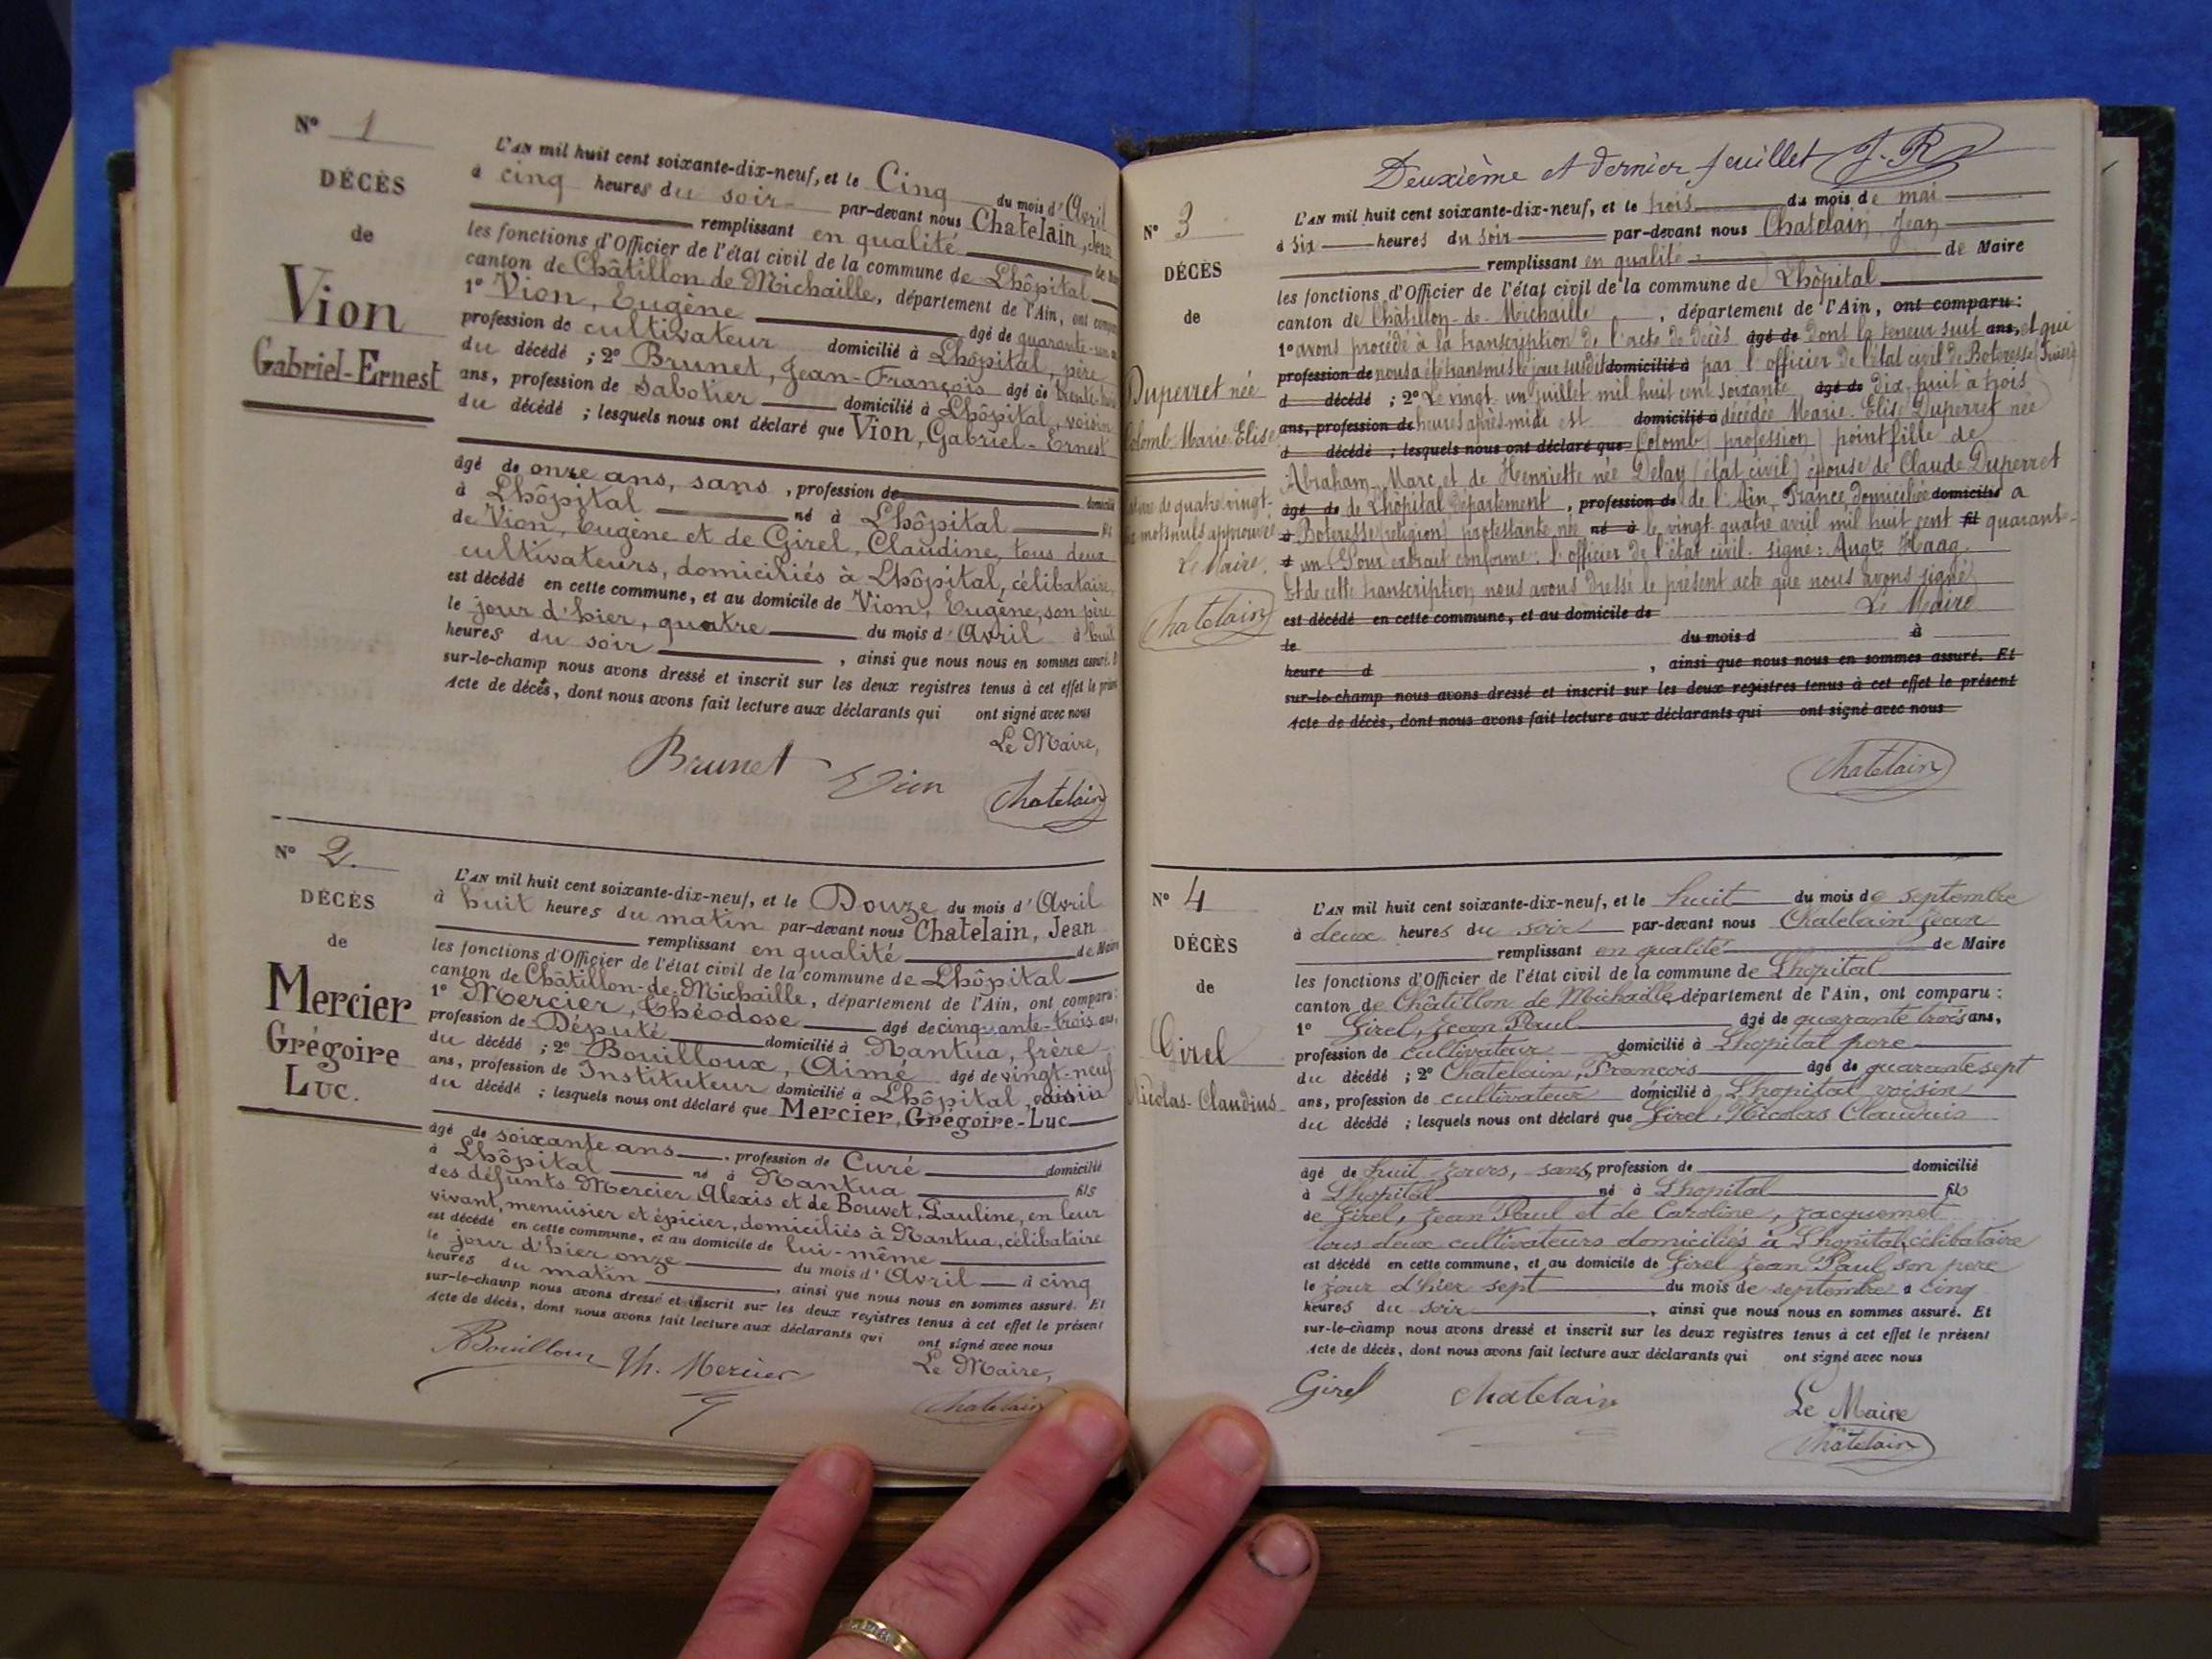 N° 1
DÉCÈS
de
Vion
Gabriel-Ernest
L'AN mil huit cent soixante-dix-neuf, et le Cinq du mois d'Avril
à cinq heures du soir par-devant nous Chatelain, Jean
remplissant en qualité de
les fonctions d'Officier de l'état civil de la commune de Lhôpital
canton de Châtillon de Michaille, département de l'Ain, ont
1° Vion, Eugène âgé de quarante-
profession de cultivateur domicilié à Lhôpital, père
du décédé ; 2° Brunet, Jean-François âgé de trente
ans, profession de Sabotier domicilié à Lhôpital, voisin
du décédé ; lesquels nous ont déclaré que Vion, Gabriel-Ernest
âgé de onze ans, sans, profession de
à Lhôpital né à Lhôpital
de Vion, Eugène et de Girel, Claudine, tous deux
cultivateurs, domiciliés à Lhôpital, célibataire,
est décédé en cette commune, et au domicile de Vion, Eugène, son père
le jour d'hier, quatre du mois d'Avril à huit
heures du soir, ainsi que nous nous en sommes assuré.
sur-le-champ nous avons dressé et inscrit sur les deux registres tenus à cet effet le
Acte de décès, dont nous avons fait lecture aux déclarants qui ont signé avec nous
Le Maire,
Brunet E Vion Chatelain
N° 2.
DÉCÈS
de
Mercier
Grégoire
Luc.
L'AN mil huit cent soixante-dix-neuf, et le Douze du mois d'Avril
à huit heures du matin par-devant nous Chatelain, Jean
remplissant en qualité de Maire
les fonctions d'Officier de l'état civil de la commune de Lhôpital
canton de Châtillon-de-Michaille, département de l'Ain, ont comparu :
1° Mercier, Théodose âgé de cinquante-trois ans,
profession de Député domicilié à Nantua, frère
du décédé ; 2° Bouilloux, Aimé âgé de vingt-neuf
ans, profession de Instituteur domicilié à Lhôpital, voisin
du décédé ; lesquels nous ont déclaré que Mercier, Grégoire-Luc
âgé de soixante ans, profession de Curé domicilié
à Lhôpital né à Nantua fils
des défunts Mercier Alexis et de Bouvet, Pauline, en leur
vivant, menuisier et épicier, domiciliés à Nantua, célibataire
est décédé en cette commune, et au domicile de lui-même
le jour d'hier onze du mois d'Avril à cinq
heures du matin, ainsi que nous nous en sommes assuré. Et
sur-le-champ nous avons dressé et inscrit sur les deux registres tenus à cet effet le présent
Acte de décès, dont nous avons fait lecture aux déclarants qui ont signé avec nous
Le Maire,
Bouilloux Th. Mercier Chatelain
Deuxième et dernier feuillet J. R
N° 3
DÉCÈS
de
Duperret née
Colomb Marie Elise
de quatre vingt
mots nuls approuvée
Le Maire.
Chatelain
L'AN mil huit cent soixante-dix-neuf, et le trois du mois de mai
à six heures du soir par-devant nous Chatelain, Jean
remplissant en qualité de Maire
les fonctions d'Officier de l'état civil de la commune de Lhôpital
canton de Châtillon-de-Michaille, département de l'Ain, ont comparu :
1° avons procédé à la transcription de l'acte de décès âgé de dont la teneur suit ans, et qui
profession de nous a été transmis le jour susdit domicilié à par l'officier de l'état civil de Boteresse (Suisse)
d décédé ; 2° Le vingt-un juillet mil huit cent soixante âgé de dix-huit à trois
ans, profession de heures après midi est domicilié à décédée Marie-Elise Duperret née
d décédé ; lesquels nous ont déclaré que Colomb (profession) point fille de
Abraham-Marc et de Henriette née Delay (état civil) épouse de Claude Duperret
âgé de de Lhôpital département, profession de de l'Ain, France, domiciliée domicilié a
à Boteresse (religion) protestante née né à le vingt-quatre avril mil huit cent fil quarant-
d un (Pour extrait conforme: l'officier de l'état civil. signé: Augte Haag.
Et de cette transcription nous avons dressé le présent acte que nous avons signé
est décédé en cette commune, et au domicile de Le Maire
le du mois d à
heure d , ainsi que nous nous en sommes assuré. Et
sur-le-champ nous avons dressé et inscrit sur les deux registres tenus à cet effet le présent
Acte de décès, dont nous avons fait lecture aux déclarants qui ont signé avec nous
Chatelain
N° 4
DÉCÈS
de
Girel
Nicolas-Claudius
L'AN mil huit cent soixante-dix-neuf, et le huit du mois de septembre
à deux heures du soir par-devant nous Chatelain Jean
remplissant en qualité de Maire
les fonctions d'Officier de l'état civil de la commune de Lhopital
canton de Châtillon de Michaille, département de l'Ain, ont comparu :
1° Girel, Jean Paul âgé de quarante trois ans,
profession de cultivateur domicilié à Lhopital pere
du décédé ; 2° Chatelain, François âgé de quarante sept
ans, profession de cultivateur domicilié à Lhopital voisin
du décédé ; lesquels nous ont déclaré que Girel, Nicolas Claudius
âgé de huit jours, sans, profession de domicilié
à Lhopital né à Lhopital fils
de Girel, Jean Paul et de Caroline, Jacquemet
tous deux cultivateurs domiciliés à Lhopital, célibataire
est décédé en cette commune, et au domicile de Girel Jean Paul son pere
le jour d'hier sept du mois de septembre à cinq
heures du soir, ainsi que nous nous en sommes assuré. Et
sur-le-champ nous avons dressé et inscrit sur les deux registres tenus à cet effet le présent
Acte de décès, dont nous avons fait lecture aux déclarants qui ont signé avec nous
Girel Chatelain Le Maire
Chatelain